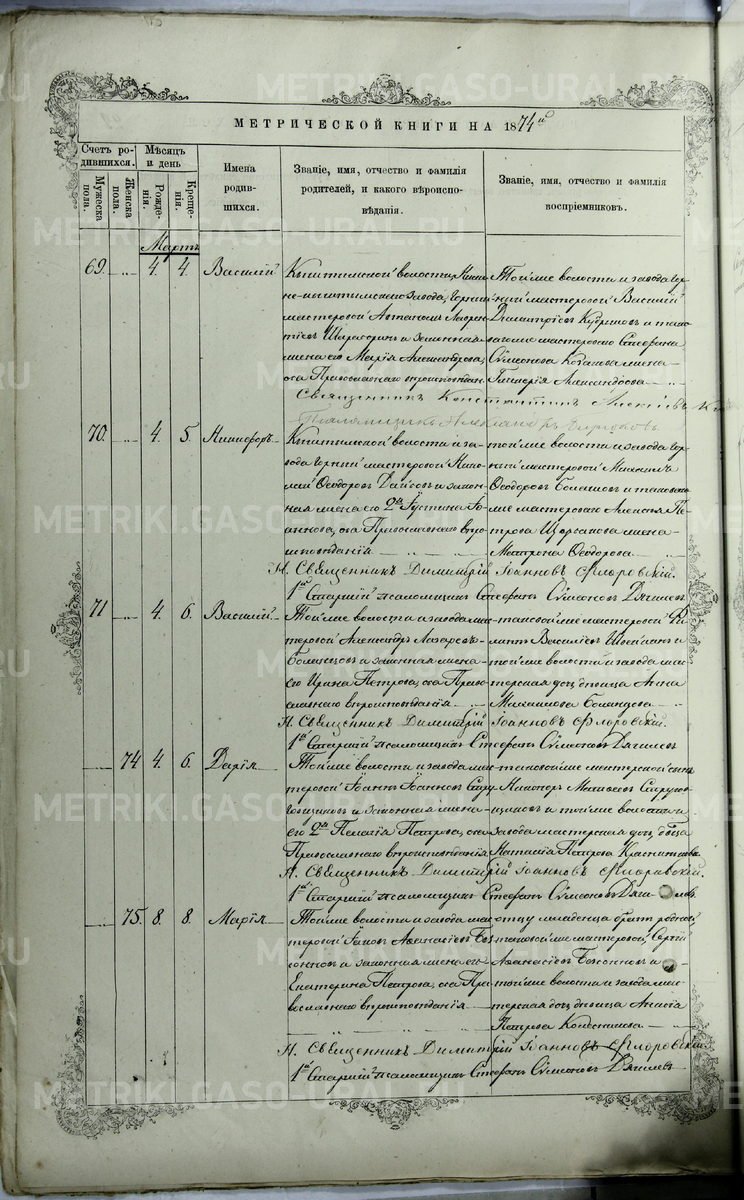 МЕТРИЧЕСКОЙ КНИГИ НА 1874й
Счетъ ро-
дившихся.
Мужеска
пола.
Женска
пола.
Мѣсяцъ
и день
Рожде-
нія.
Креще-
нія.
Имена
родив-
шихся.
Званіе, имя, отчество и фамилія
родителей, и какого вѣроиспо-
вѣданія.
Званіе, имя, отчество и фамилія
воспріемниковъ.
Мартъ
69. 4. 4. Василій
Кыштымской волости, Ниж-
не-кыштымскаго завода, Горный
мастеровой
и законная
жена его Марія Александрова,
оба Православнаго
Той же волости и завода Гор-
ный мастеровой Василій
Димитріевъ и тако-
мастероваго Стефана
Сѵмеонова жена
Александрова
Священникъ Константинъ Алексіевъ
70. 4. 5. Никифоръ
Кыштымской волости и за-
вода Горный мастеровой Нико-
лай Ѳеодоровъ и закон-
ная жена его 2я Іустина Іо-
аннова, оба Православнаго вѣро-
исповѣданія
той же волости и завода Гор-
ный мастеровой Михаилъ
Ѳеодоровъ и таковаго
же мастероваго Алексѣя Пе-
трова жена
Матрона Ѳеодорова
Н. Священникъ Димитрій Іоанновъ Флоровскій.
1й Старшій псаломщикъ Стефанъ Сѵмеоновъ Дягилевъ
71 4. 6. Василій
Той же волости и завода мас-
теровой Александръ Лазаревъ
и законная жена
его Ирина Петрова, оба Право-
славнаго вѣроисповѣданія
таковой же мастеровой
Василіевъ и
той же волости и завода мас-
терская дочь дѣвица Анна
Михаилова
Н. Священникъ Димитрій Іоанновъ Флоровскій.
1й Старшій псаломщикъ Стефанъ Сѵмеоновъ Дягилевъ
74 4. 6. Дарія
Той же волости и завода мас-
теровой Іоаннъ Іоанновъ
и законная жена
его 2я Пелагія Петрова, оба
Православнаго вѣроисповѣданія
таковой же мастерской сынъ
Никаноръ Матвеевъ
и той же волости и
завода мастерская дочь дѣвица
Наталія Петрова
Н. Священникъ Димитрій Іоанновъ Флоровскій.
1й Старшій псаломщикъ Стефанъ Сѵмеоновъ Дягилевъ.
75. 8. 8. Марія
Той же волости и завода мас-
теровой Іаковъ Аѳанасіевъ
и законная жена его
Екатерина Петрова, оба Пра-
вославнаго вѣроисповѣданія
отцу младенца братъ родной,
таковой же мастеровой, Сергій
Аѳанасіевъ и
той же волости и завода мас-
терская дочь дѣвица
Петрова
Н. Священникъ Димитрій Іоанновъ Флоровскій.
1й Старшій псаломщикъ Стефанъ Сѵмеоновъ Дягилевъ
METRIKI.GASO-URAL.RU